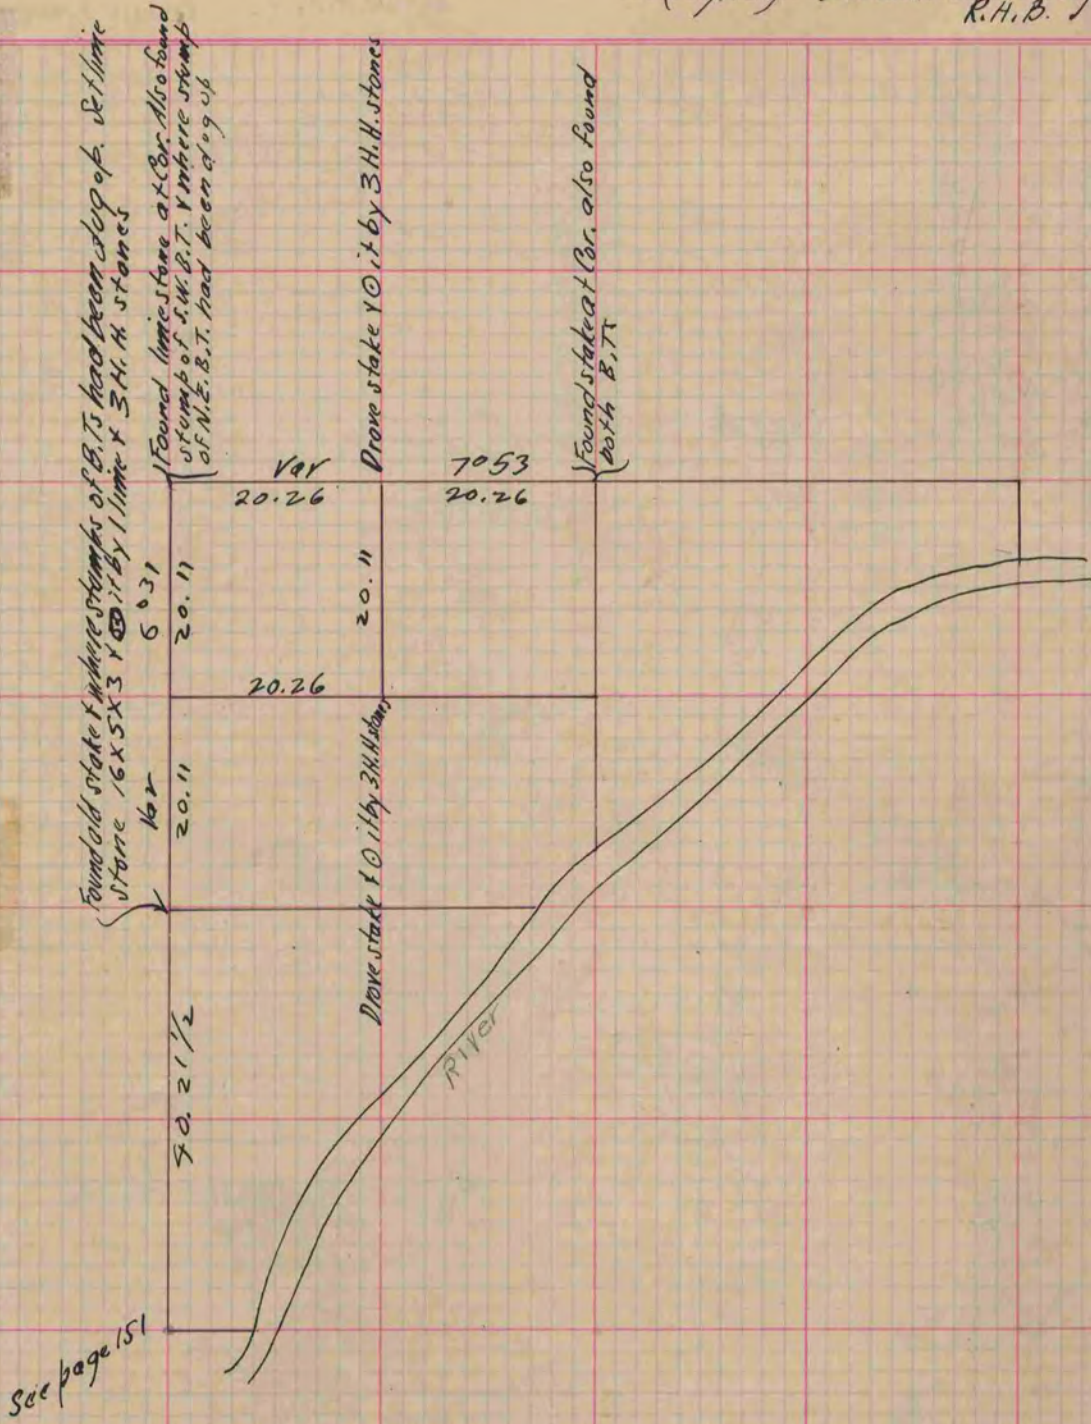 R.H.B.
Found old stake & where stumps of B.Ts had been dug up. Set lime
stone 16X5X3 & ⊙ it by 1 lime & 3 H.H. stones
Found limestone at Cor. Also found
stump of S.W. B.T. & where stump
of N.E. B.T. had been dug up
Drove stake & ⊙ it by 3 H.H. stones
Found stake at Cor. also found
both B.Ts
Var 7°53
20.26 20.26
Var 6°31
20.11
20.11
20.26
20.11
Drove stake & ⊙ it by 3 H.H. stones
River
40.21 1/2
See page 151